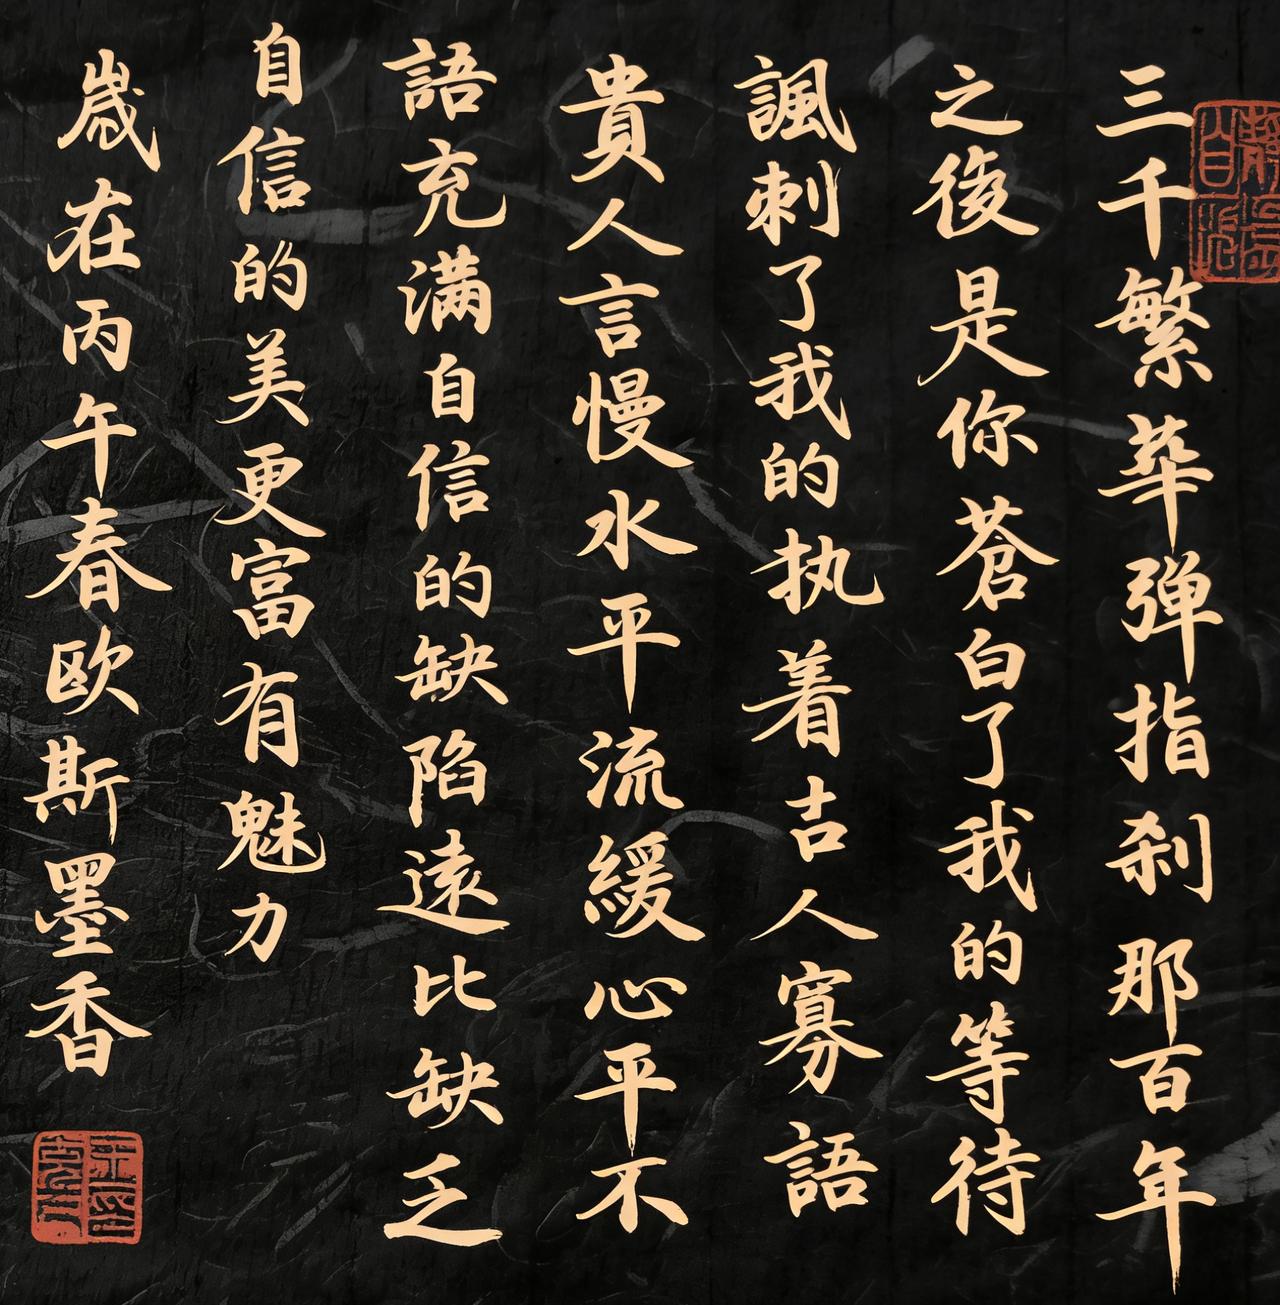 三千繁華弹指刹那百年
之後是你蒼白了我的等待
諷刺了我的执着古人寡語
貴人言慢水平流緩心平不
語充满自信的缺陷遠比缺乏
自信的美更富有魅力
歲在丙午春欧斯墨香